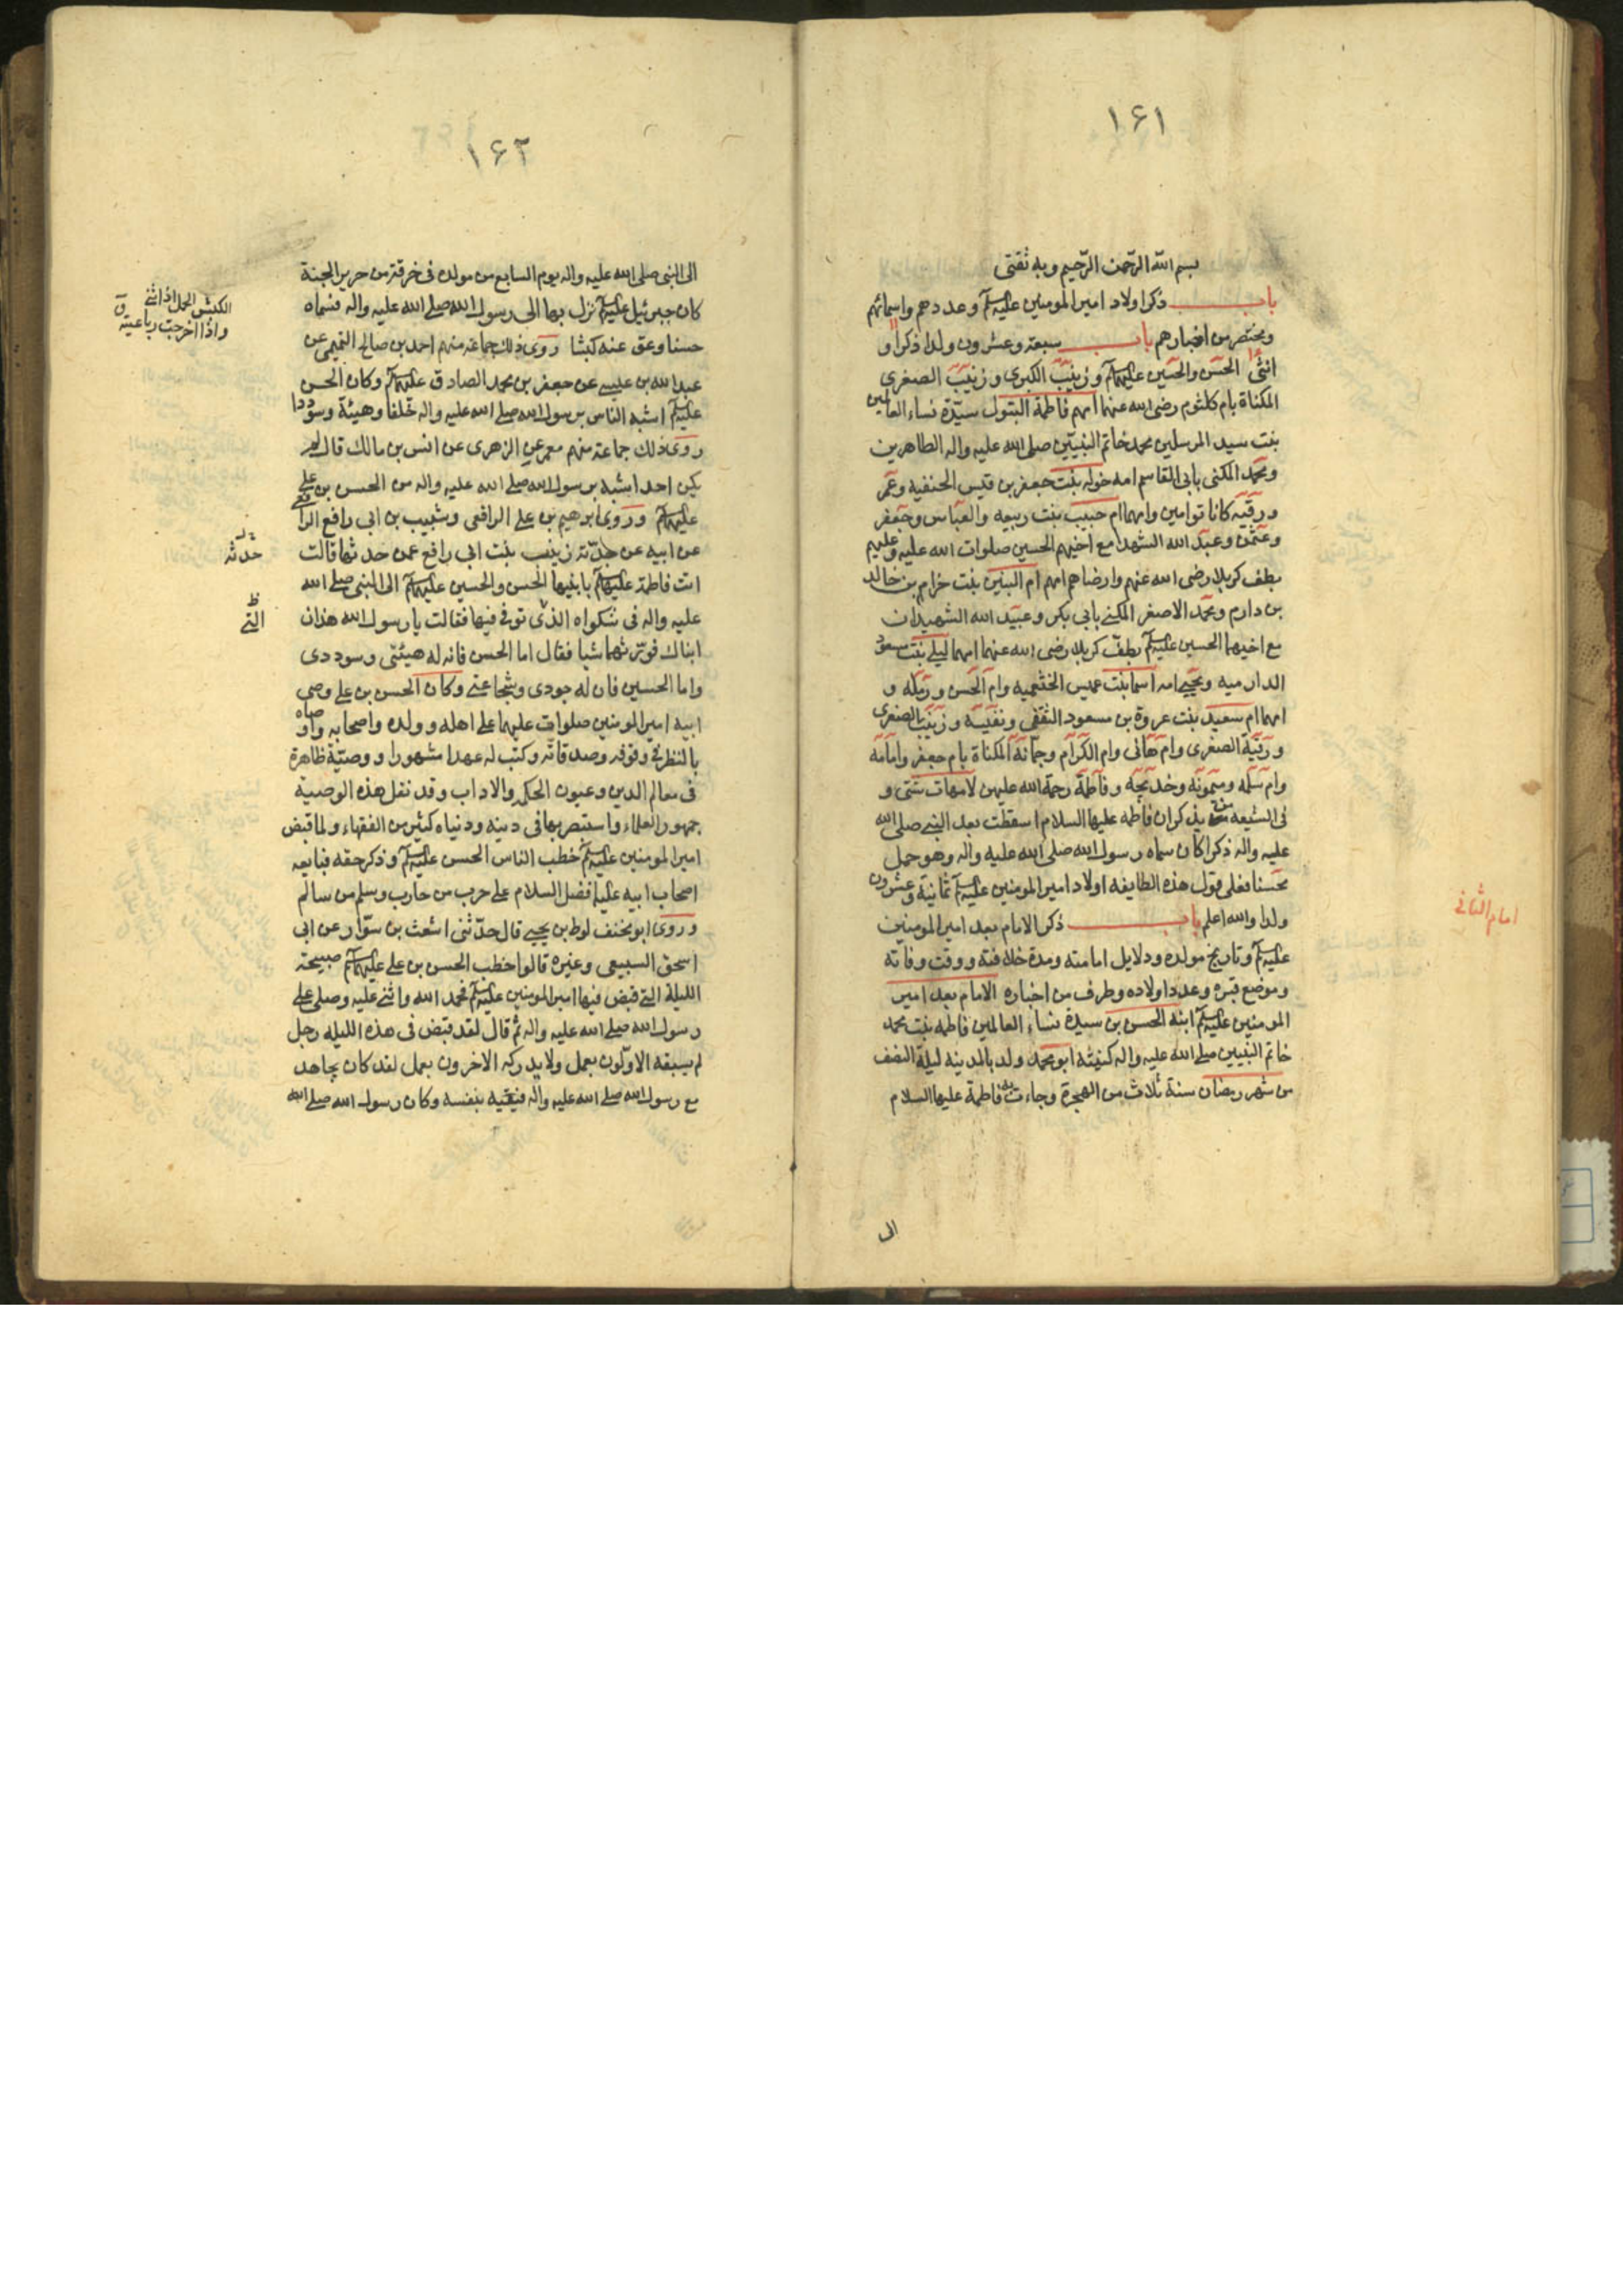 ١۶١
بسم الله الرحمن الرحيم وبه ثقتى
باب ذكر اولاد امير المومنين عليه السلم وعددهم واسمائهم
ومختصر من اخبارهم باب سبعة وعشرون ولدا ذكرا و
انثى الحسن والحسين عليهما السلم وزينب الكبرى وزينب الصغرى
المكناة بام كلثوم رضى الله عنها امهم فاطمة البتول سيدة نساء العالمين
بنت سيد المرسلين محمد خاتم النبيين صلى الله عليه واله الطاهرين
ومحمد المكنى بابى القاسم امه خوله بنت جعفر بن قيس الحنفيه وعمر
ورقيه كانا توامين وامهما ام حبيب بنت ربيعه والعباس وجعفر
وعثمن وعبد الله الشهدا مع اخيهم الحسين صلوات الله عليه وعليهم
بطف كربلا رضى الله عنهم وارضاهم امهم ام البنين بنت حزام بن خالد
بن دارم ومحمد الاصغر المكنى بابى بكر وعبيد الله الشهيدان
مع اخيهما الحسين عليه السلم بطف كربلا رضى الله عنهما امهما ليلى بنت مسعود
الدارميه ويحيى امه اسما بنت عميس الخثعميه وام الحسن ورمله و
امهما ام سعيد بنت عروة بن مسعود الثقفى ونفيسه وزينب الصغرى
ورقية الصغرى وام هانى وام الكرام وجمانة المكناة بام جعفر وامامه
وام سلمه وميمونه وخديجه وفاطمة رحمة الله عليهن لامهات شتى و
فى الشيعه من يذكر ان فاطمه عليها السلام اسقطت بعد النبى صلى الله
عليه واله ذكرا كان سماه رسول الله صلى الله عليه واله وهو حمل
محسنا فعلى قول هذه الطايفه اولاد امير المومنين عليه السلم ثمانية وعشرون
ولدا والله اعلم باب ذكر الامام بعد امير المومنين
امام الثانى
عليه السلم وتاريخ مولده ودلايل امامته ومدة خلافته ووقت وفاته
وموضع قبره وعدد اولاده وطرف من اخباره الامام بعد امير
المومنين عليه السلم ابنه الحسن بن سيدة نساء العالمين فاطمه بنت محمد
خاتم النبيين صلى الله عليه واله كنيته ابو محمد ولد بالمدينه ليلة النصف
من شهر رمضان سنة ثلاث من الهجرة وجاءت به فاطمة عليها السلام
الى
١۶٢
الى النبى صلى الله عليه واله يوم السابع من مولده فى خرقة من حرير الجنة
كان جبرئيل عليه السلم نزل بها الى رسول الله صلى الله عليه واله فسماه
الكبش الحمل اذا اثنى
واذا خرجت رباعيته ق
حسنا وعق عنه كبشا روى ذلك جماعة منهم احمد بن صالح التميمى عن
عبد الله بن عيسى عن جعفر بن محمد الصادق عليهما السلم وكان الحسن
عليه السلم اشبه الناس برسول الله صلى الله عليه واله خلقا وهيئة وسؤددا
روى ذلك جماعة منهم معمر عن الزهرى عن انس بن مالك قال لم
يكن احد اشبه برسول الله صلى الله عليه واله من الحسن بن على
عليهما السلم وروى ابرهيم بن على الرافعى وشبيب بن ابى رافع الرافعى
عن ابيه عن جدته زينب بنت ابى رافع عمن حدثها قالت
حدثه
اتت فاطمة عليها السلم بابنيها الحسن والحسين عليهما السلم الى النبى صلى الله
عليه واله فى شكواه الذى توفى فيها فقالت يا رسول الله هذان
التى
ابناك فورثهما شيا فقال اما الحسن فانه له هيئتى وسوددى
واما الحسين فان له جودى وشجاعتى وكان الحسن بن على وصى
ابيه امير المومنين صلوات عليهما على اهله وولده واصحابه واوصاه
بالنظر فى وقوفه وصدقاته وكتب له عهدا مشهورا ووصية ظاهرة
فى معالم الدين وعيون الحكم والاداب وقد نقل هذه الوصية
جمهور العلماء واستبصر بها فى دينه ودنياه كثير من الفقهاء ولما قبض
امير المومنين عليه السلم خطب الناس الحسن عليه السلم وذكر حقه فبايعه
اصحاب ابيه عليهما افضل السلام على حرب من حارب وسلم من سالم
وروى ابو مخنف لوط بن يحيى قال حدثنى اشعث بن سوار عن ابى
اسحق السبيعى وغيره قالوا خطب الحسن بن على عليهما السلم صبيحة
الليلة التى قبض فيها امير المومنين عليه السلم فحمد الله واثنى عليه وصلى على
رسول الله صلى الله عليه واله ثم قال لقد قبض فى هذه الليله رجل
لم يسبقه الاولون بعمل ولا يدركه الاخرون بعمل لقد كان يجاهد
مع رسول الله صلى الله عليه واله فيقيه بنفسه وكان رسول الله صلى الله